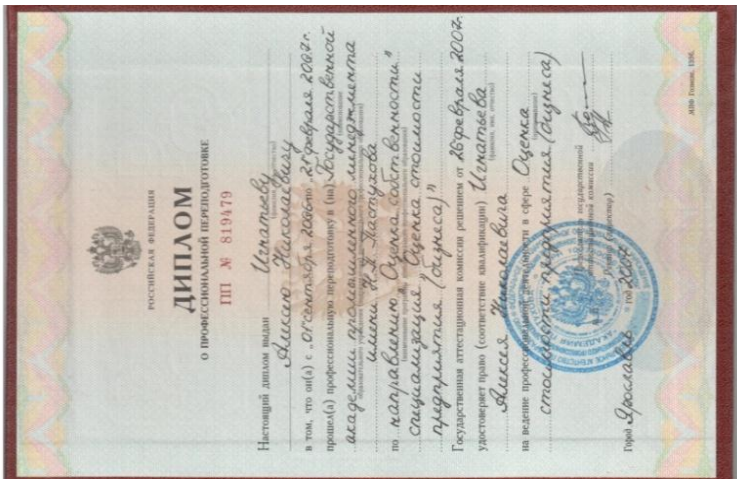 РОССИЙСКАЯ ФЕДЕРАЦИЯ
ДИПЛОМ
О ПРОФЕССИОНАЛЬНОЙ ПЕРЕПОДГОТОВКЕ
ПП № 819479
Настоящий диплом выдан Игнатьеву
(фамилия, имя, отчество)
Алексею Николаевичу
в том, что он(а) с „01" сентября 2006 по „27" февраля 2007 г.
прошел(а) профессиональную переподготовку в (на) Государственной
академии промышленного менеджмента
имени Н.П. Пастухова
по направлению „Оценка собственности"
специализация „Оценка стоимости
предприятия (бизнеса)"
Государственная аттестационная комиссия решением от 26 февраля 2007
удостоверяет право (соответствие квалификации) Игнатьева
(фамилия, имя, отчество)
Алексея Николаевича
на ведение профессиональной деятельности в сфере Оценка
стоимости предприятия (бизнеса)
Председатель государственной
аттестационной комиссии
Ректор (директор)
Город Ярославль год 2007